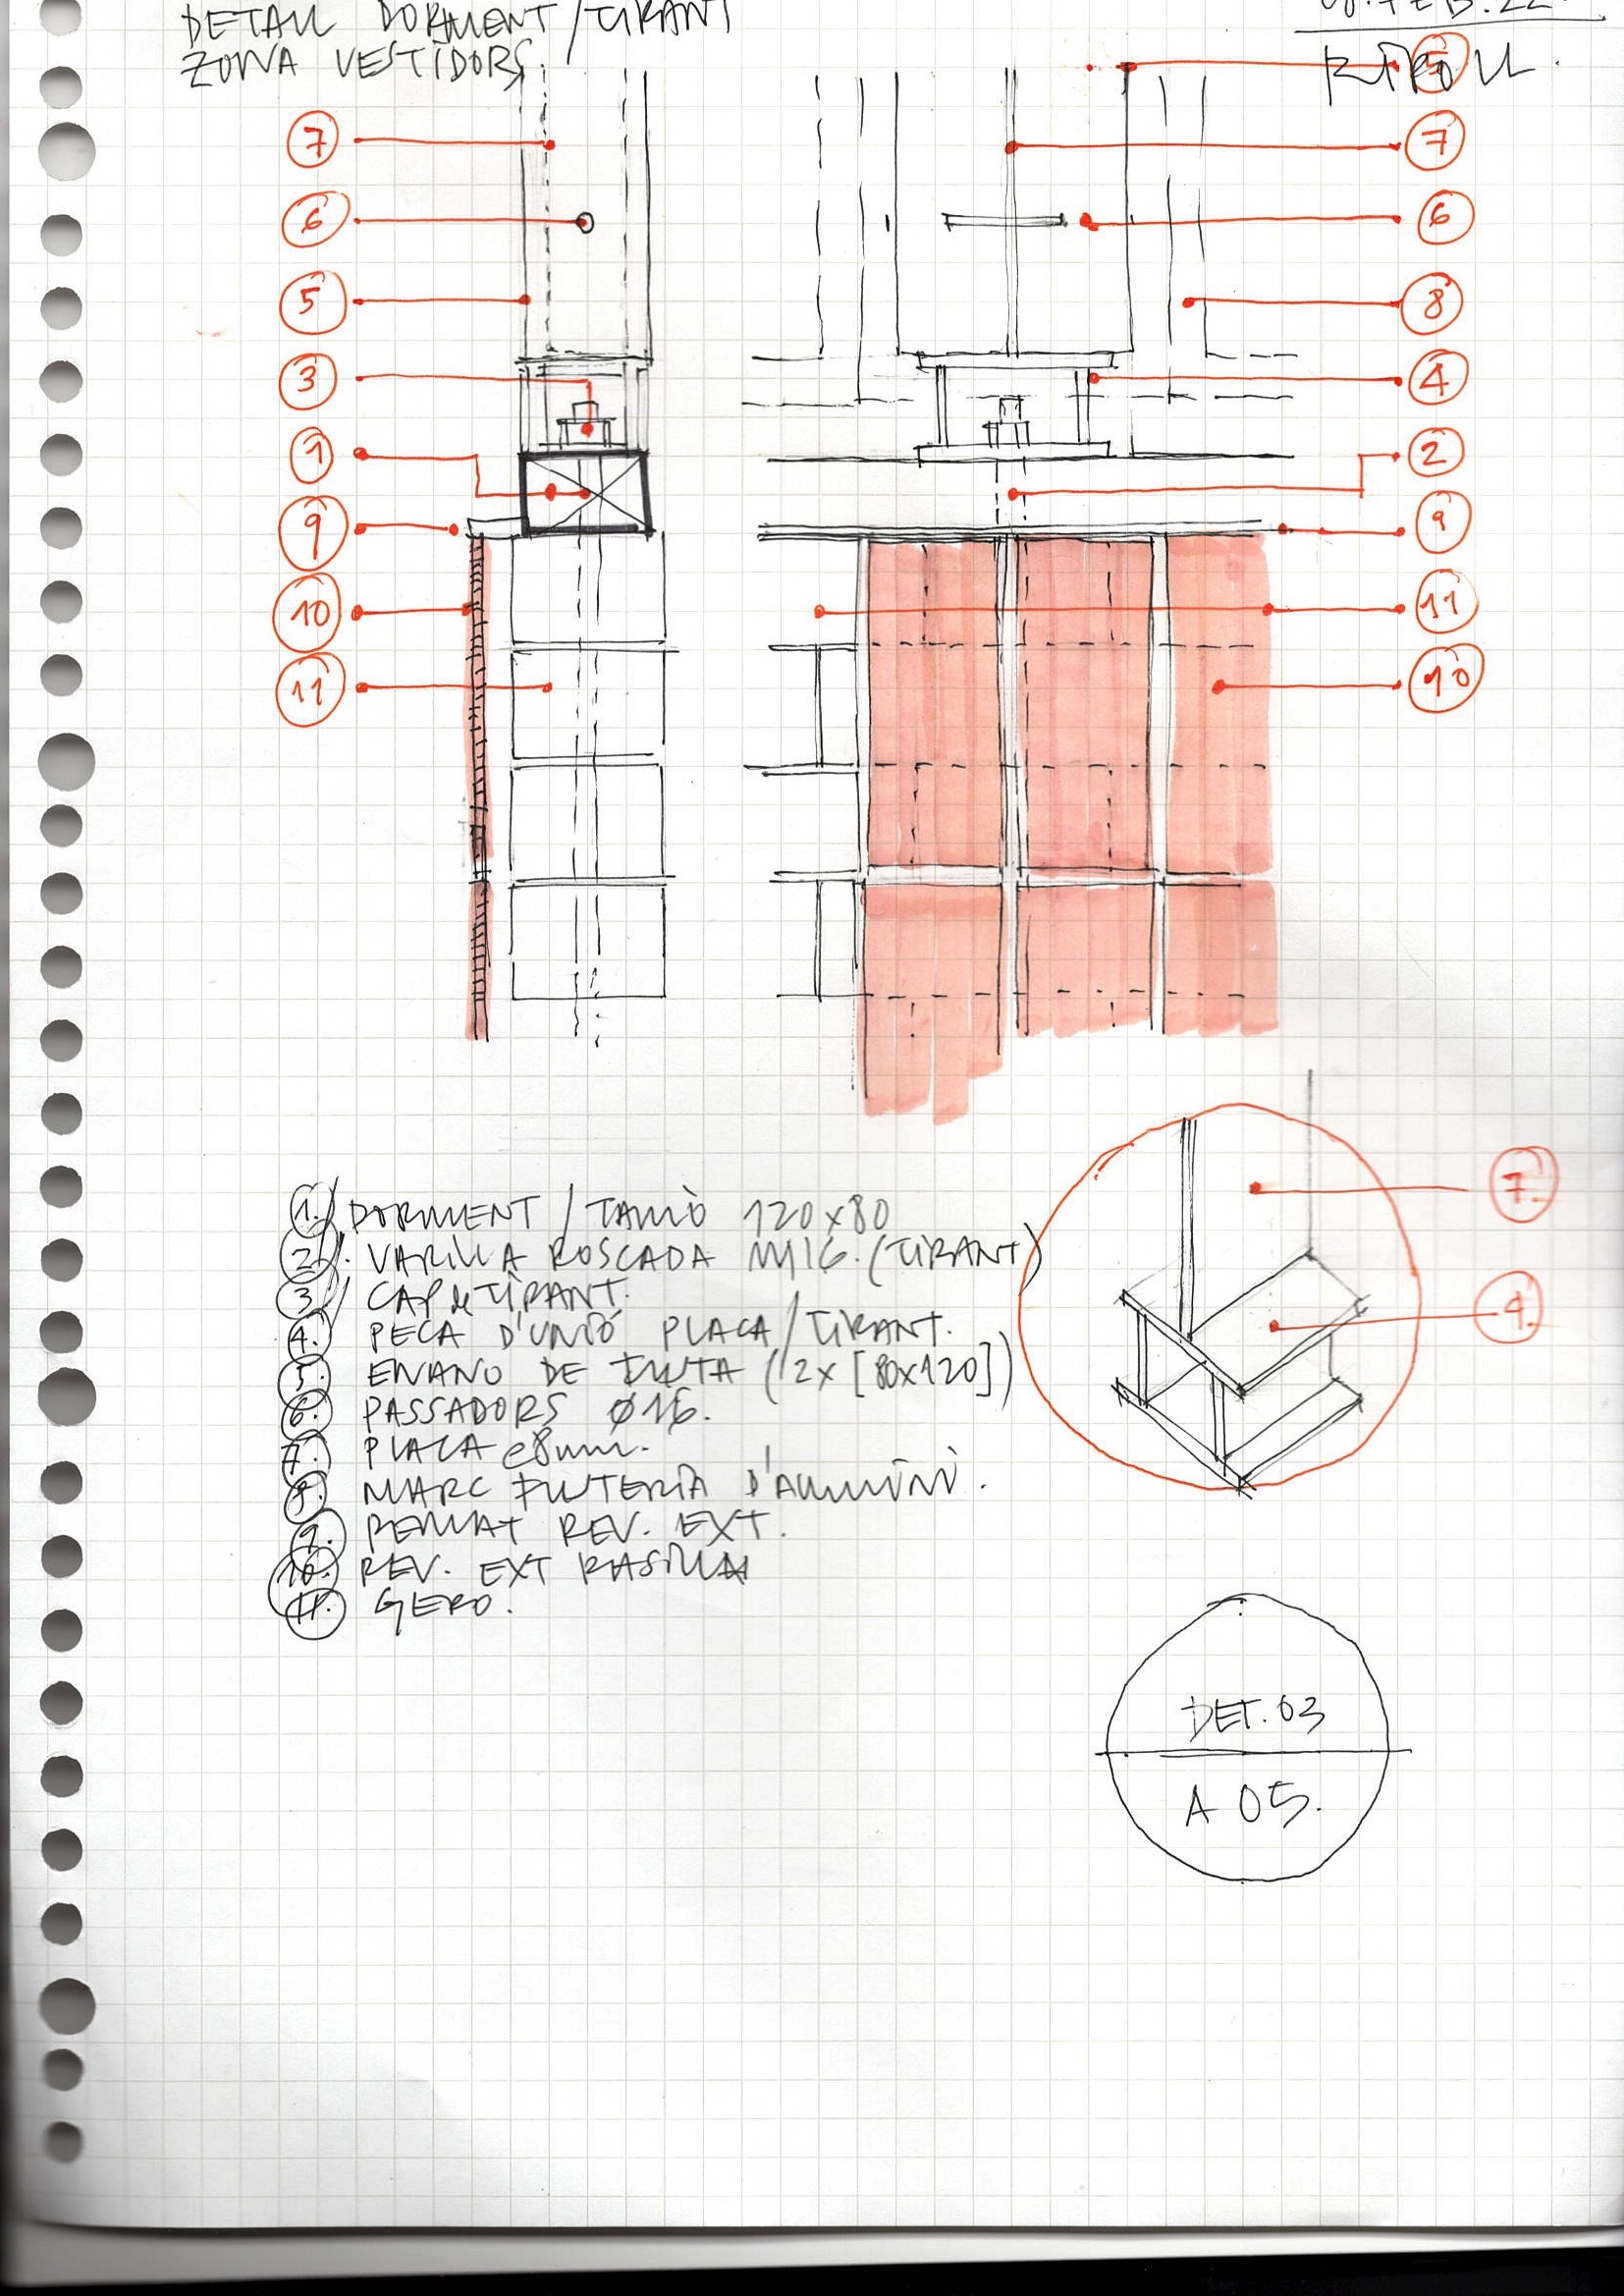 DETALL DORMENT/TIRANT
ZONA VESTIDORS.
FEB.22.
RIPOLL.
5
7
7
6
6
5
8
3
4
1
2
9
9
10
11
11
10
7.
4.
1. DORMENT / TAULÓ 120x80
2. VARILLA ROSCADA M16. (TIRANT)
3. CAP de TIRANT.
4. PEÇA D'UNIÓ PLACA/TIRANT.
5. ENANO DE FUSTA (2x [80x120])
6. PASSADORS Ø16.
7. PLACA e8mm.
8. MARC FUSTERIA D'ALUMINI.
9. REMAT REV. EXT.
10. REV. EXT RASILLA
11. GERO.
DET.03
A 05.